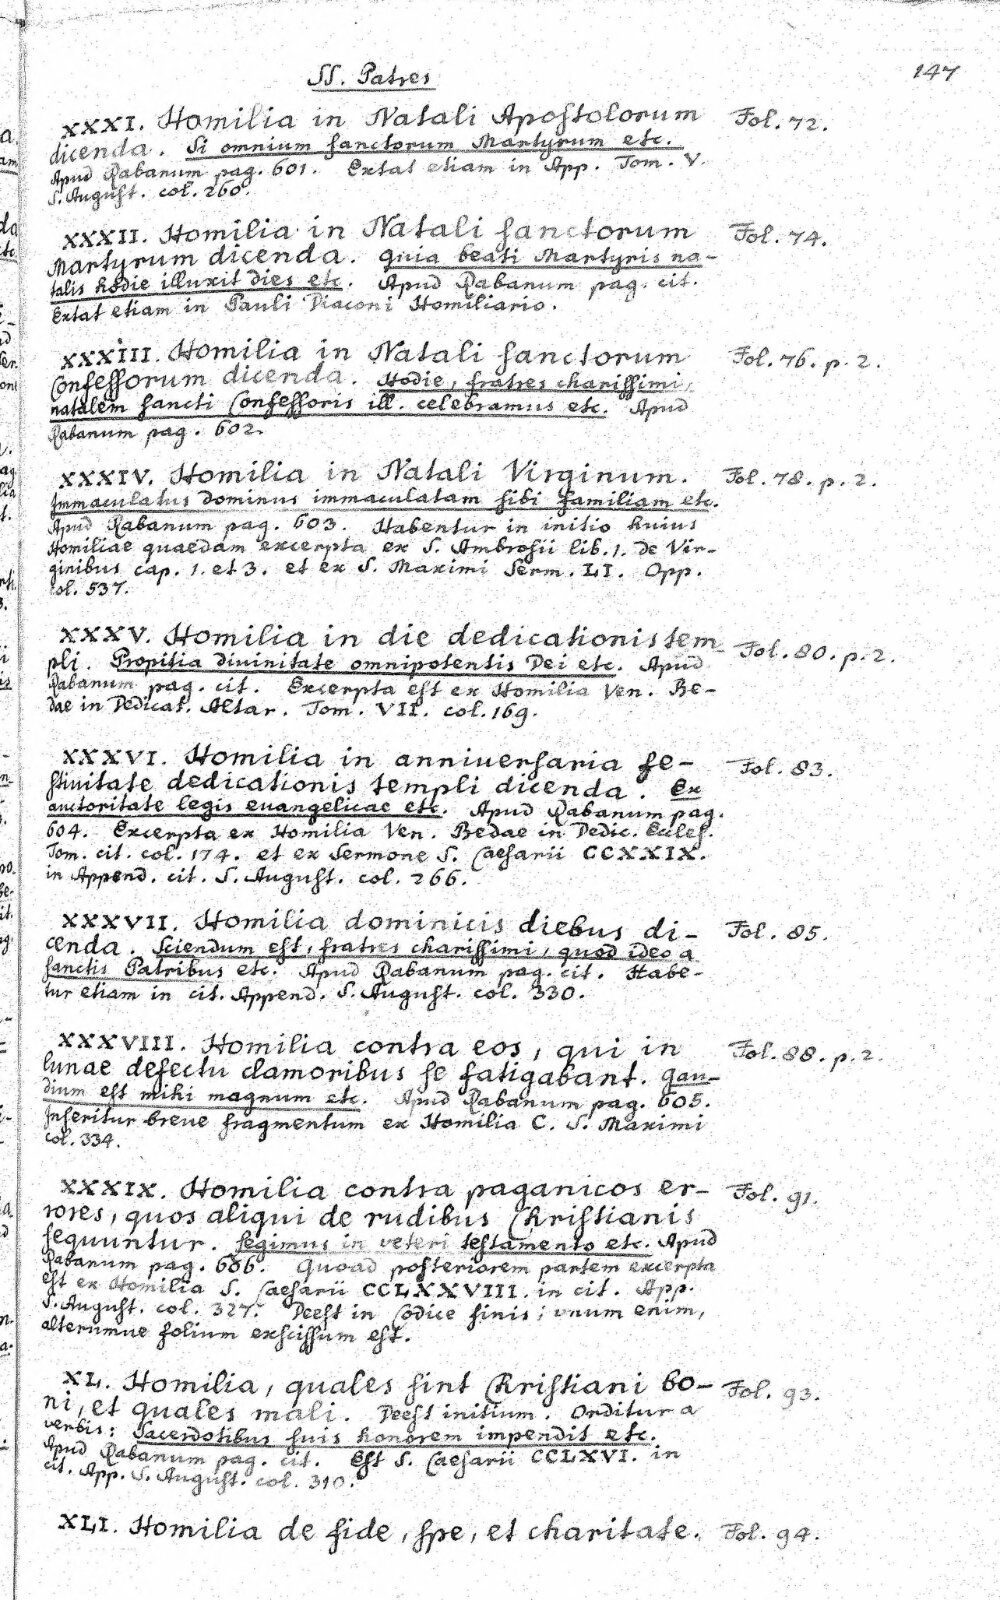 SS. Patres
147
XXXI. Homilia in Natali Apostolorum Fol. 72.
dicenda. Si omnium sanctorum Martyrum etc.
Apud Rabanum pag. 601. Extat etiam in App. Tom. V.
S. August. col. 260.
XXXII. Homilia in Natali sanctorum Fol. 74.
Martyrum dicenda. Quia beati Martyris na-
talis hodie illuxit dies etc. Apud Rabanum pag. cit.
Extat etiam in Pauli Diaconi Homiliario.
XXXIII. Homilia in Natali sanctorum Fol. 76. p. 2.
Confessorum dicenda. Hodie, fratres charissimi,
natalem sancti Confessoris ill. celebramus etc. Apud
Rabanum pag. 602.
XXXIV. Homilia in Natali Virginum. Fol. 78. p. 2.
Immaculatus Dominus immaculatam sibi familiam etc.
Apud Rabanum pag. 603. Habentur in initio huius
Homiliae quaedam excerpta ex S. Ambrosii lib. 1. de Vir-
ginibus cap. 1. et 3. et ex S. Maximi Serm. LI. Opp.
col. 537.
XXXV. Homilia in die dedicationis tem- Fol. 80. p. 2.
pli. Propitia divinitate omnipotentis Dei etc. Apud
Rabanum pag. cit. Excerpta est ex Homilia Ven. Be-
dae in Dedicat. Altar. Tom. VII. col. 169.
XXXVI. Homilia in anniuersaria fe- Fol. 83.
stiuitate dedicationis templi dicenda. Ex
auctoritate legis euangelicae etc. Apud Rabanum pag.
604. Excerpta ex Homilia Ven. Bedae in Dedic. Eccles.
Tom. cit. col. 174. et ex Sermone S. Caesarii CCXXIX.
in Append. cit. S. August. col. 266.
XXXVII. Homilia dominicis diebus di- Fol. 85.
cenda. Sciendum est, fratres charissimi, quod ideo a
sanctis Patribus etc. Apud Rabanum pag. cit. Habe-
tur etiam in cit. Append. S. August. col. 330.
XXXVIII. Homilia contra eos, qui in Fol. 88. p. 2.
lunae defectu clamoribus se fatigabant. Gau-
dium est mihi magnum etc. Apud Rabanum pag. 605.
Inseritur breue fragmentum ex Homilia C. S. Maximi
col. 334.
XXXIX. Homilia contra paganicos er- Fol. 91.
rores, quos aliqui de rudibus Christianis
sequuntur. Legimus in veteri testamento etc. Apud
Rabanum pag. 606. Quoad posteriorem partem excerpta
est ex Homilia S. Caesarii CCLXXVIII. in cit. App.
S. August. col. 327. Deest in Codice finis; vnum enim,
alterumue folium exscissum est.
XL. Homilia, quales sint Christiani bo- Fol. 93.
ni, et quales mali. Deest initium. Orditur a
verbis: Sacerdotibus suis honorem impendit etc.
Apud Rabanum pag. cit. Est S. Caesarii CCLXVI. in
cit. App. S. August. col. 310.
XLI. Homilia de fide, spe, et charitate. Fol. 94.